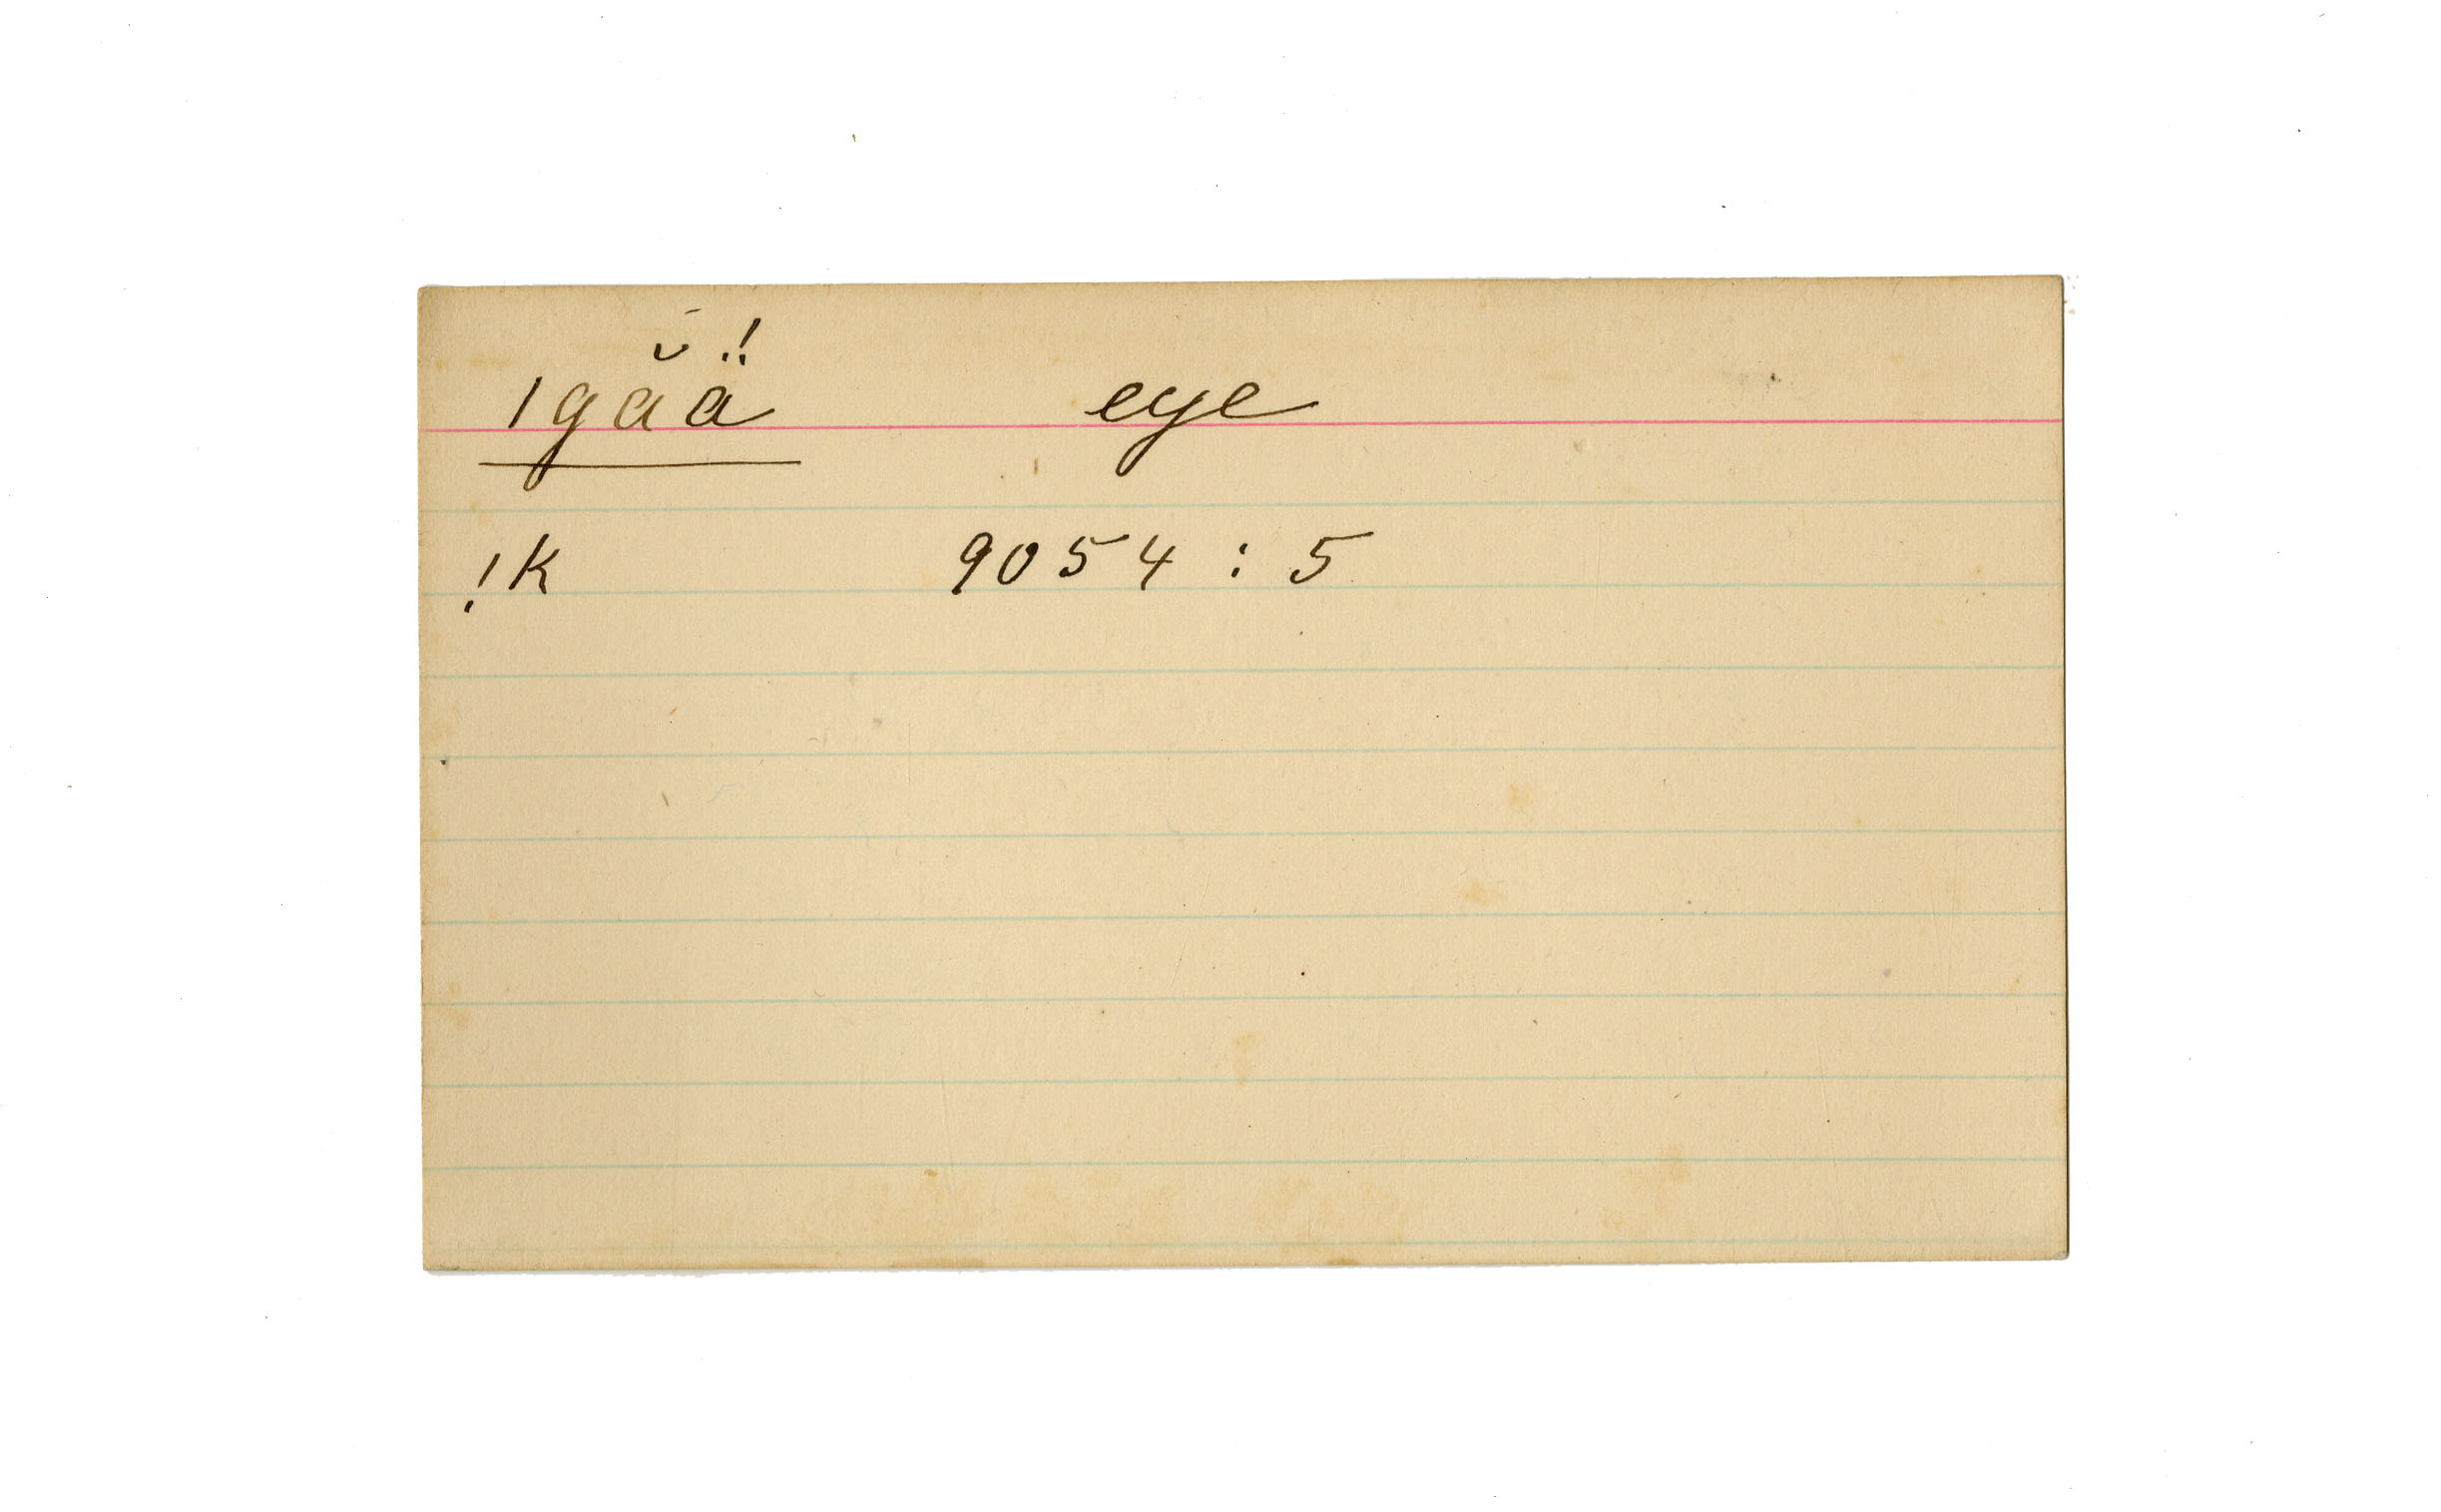 |găä́ eye
!k 9054 : 5